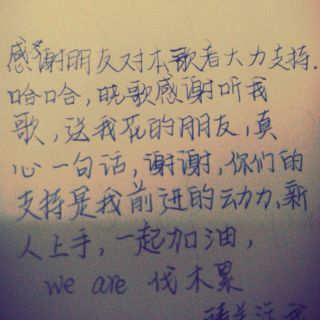 感谢朋友对本歌者大力支持.
哈哈,晓歌感谢听我
歌,送我花的朋友,真
心一句话,谢谢,你们的
支持是我前进的动力,新
人上手,一起加油,
we are 伐木累
请关注我